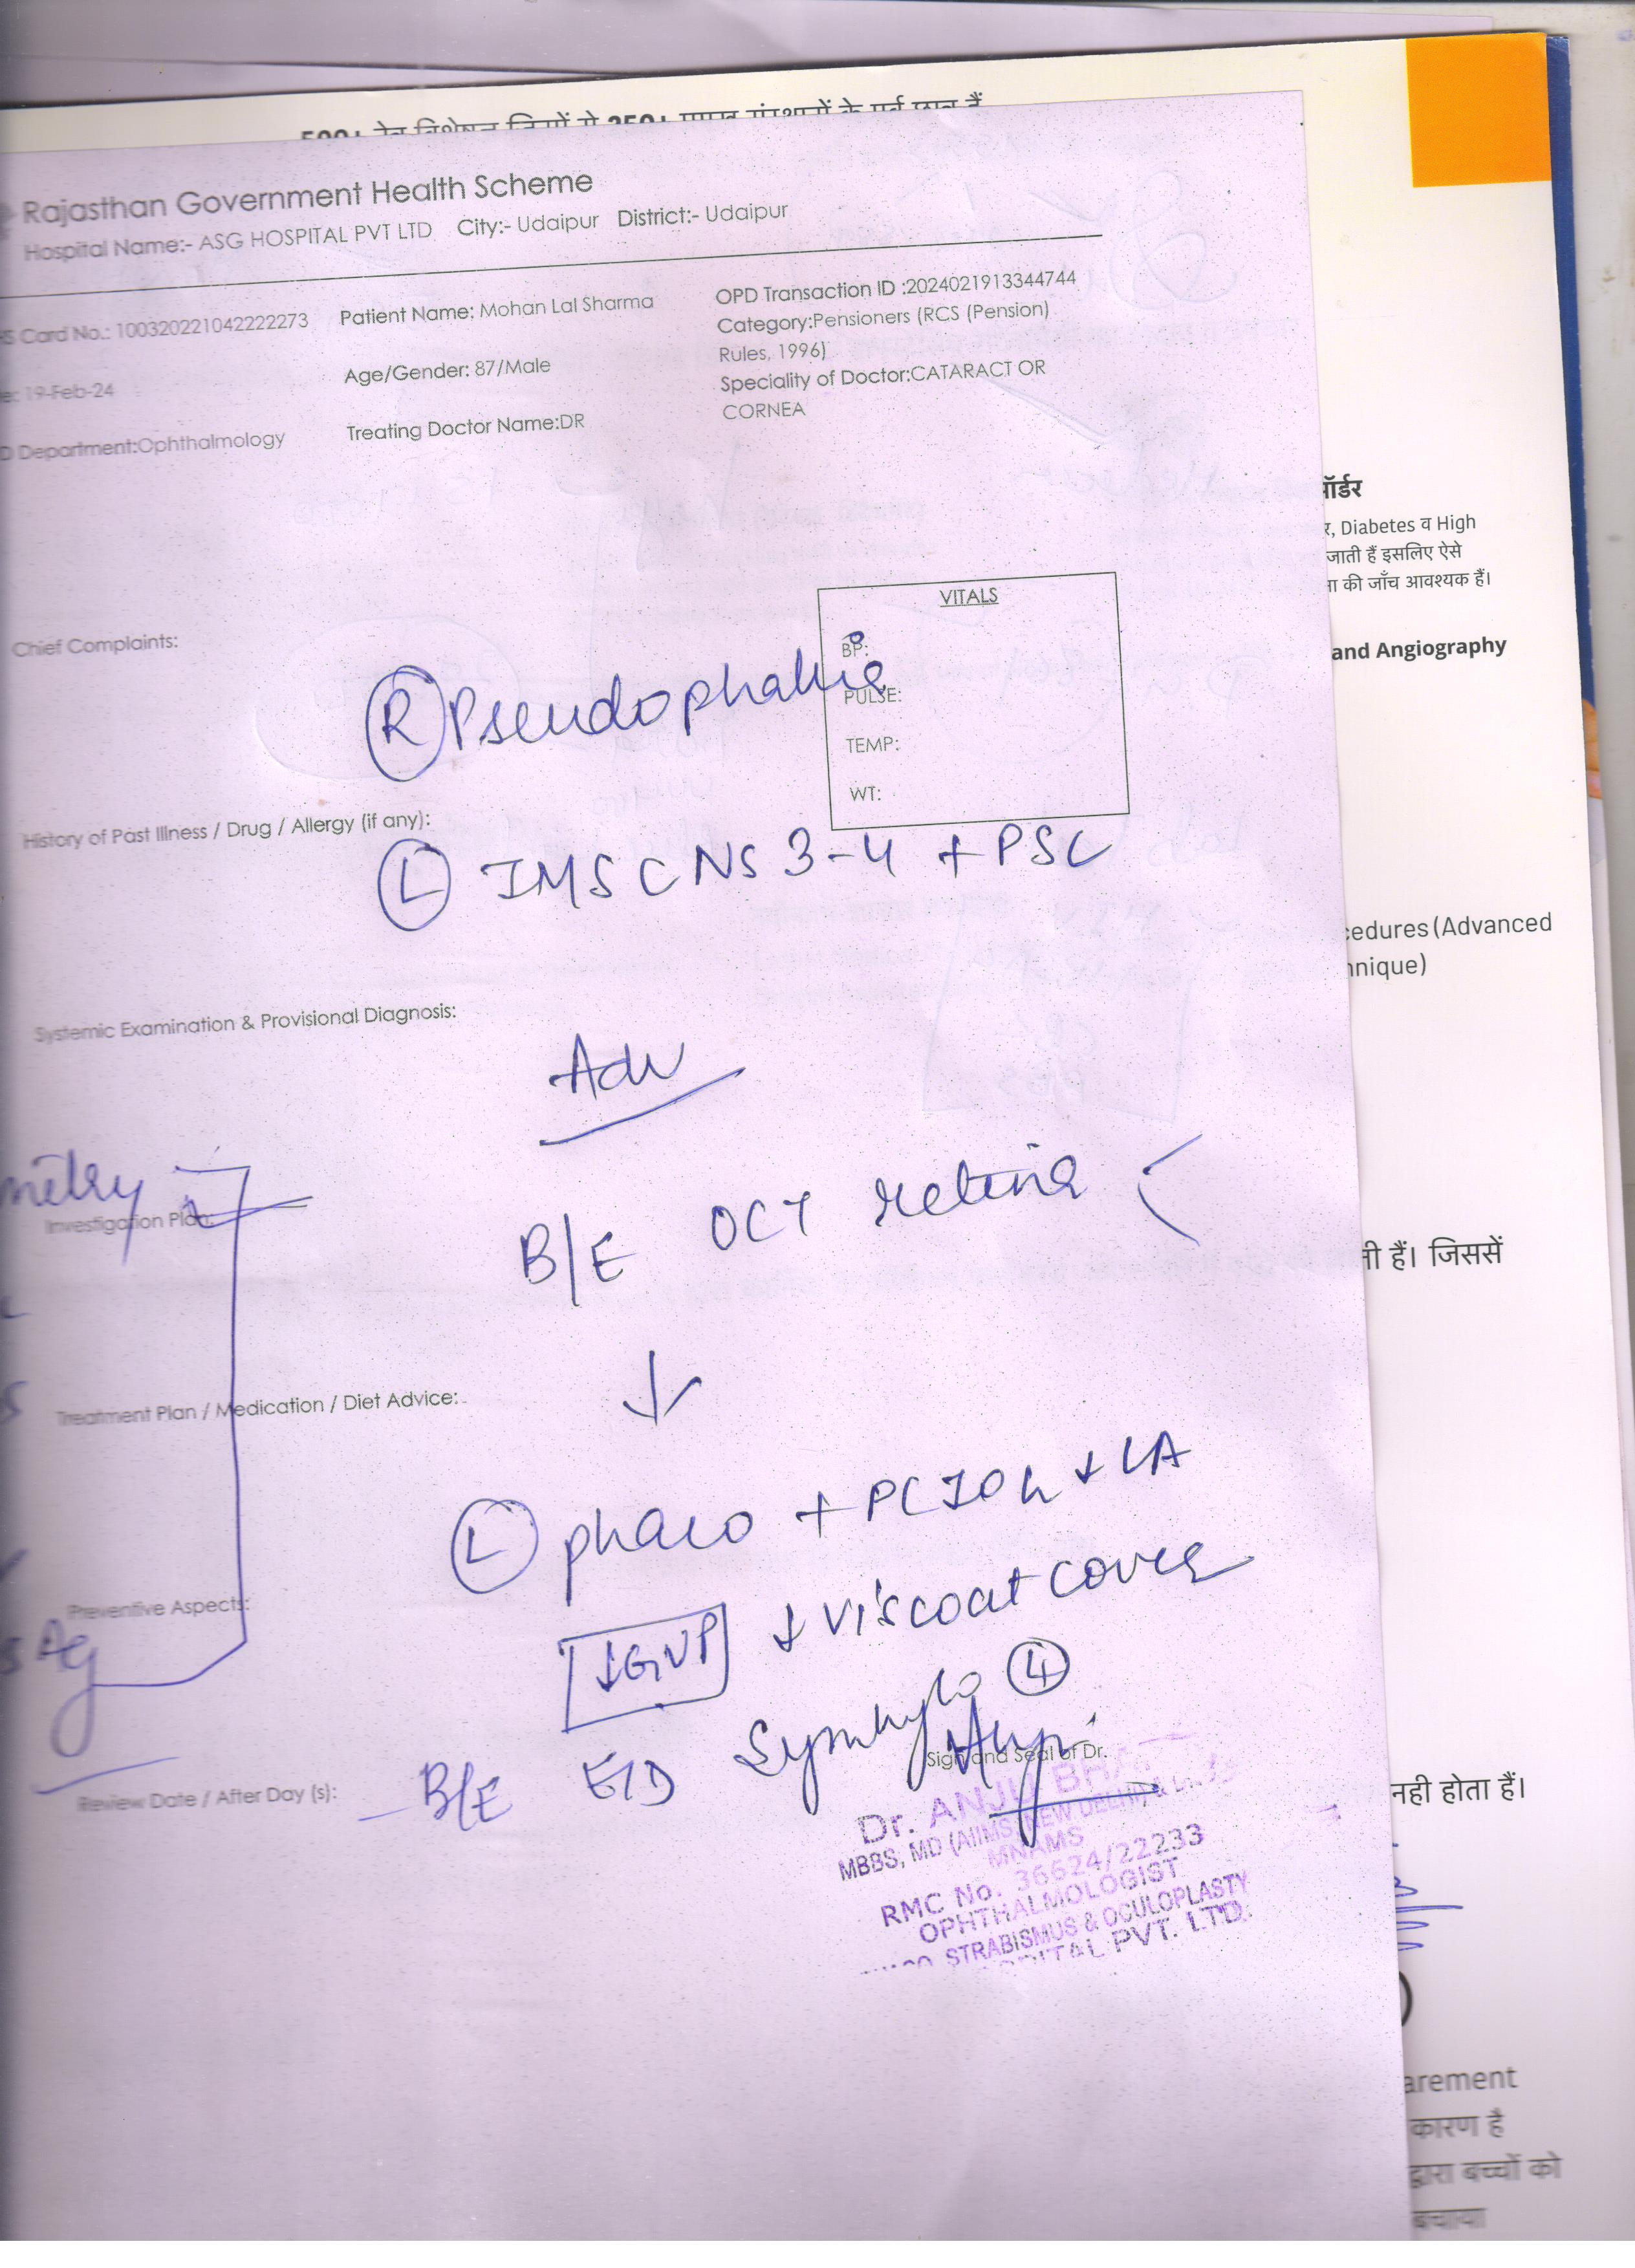 Rajasthan Government Health Scheme
Hospital Name:- ASG HOSPITAL PVT LTD City:- Udaipur District:- Udaipur
S Card No.: 100320221042222273
Patient Name: Mohan Lal Sharma
OPD Transaction ID :2024021913344744
Category:Pensioners (RCS (Pension)
Rules, 1996)
19-Feb-24
Age/Gender: 87/Male
Speciality of Doctor:CATARACT OR
CORNEA
D Department:Ophthalmology
Treating Doctor Name:DR
ॉर्डर
र, Diabetes व High
जाती हैं इसलिए ऐसे
की जाँच आवश्यक हैं।
VITALS
Chief Complaints:
BP:
and Angiography
R Pseudophakia
PULSE:
TEMP:
WT:
History of Past Illness / Drug / Allergy (if any):
L IMSC NS 3-4 + PSC
cedures (Advanced
nnique)
Systemic Examination & Provisional Diagnosis:
Adv
metry
Investigation Plan:
B/E OCT retina
हैं। जिससें
Treatment Plan / Medication / Diet Advice:
L phaco + PCIOL ↓ LA
Preventive Aspects:
↓GVP ↓ viscoat cover
s Ag
Symhylo 4
Sign and Seal of Dr.
Review Date / After Day (s):
B/E E/D
नही होता हैं।
Dr. ANJU
MBBS, MD (AIIMS, NEW DELHI)
MNAMS
RMC No. 36624/22233
OPHTHALMOLOGIST
STRABISMUS & OCULOPLASTY
PVT. LTD.
arement
कारण है
द्वारा बच्चों को
बचाया